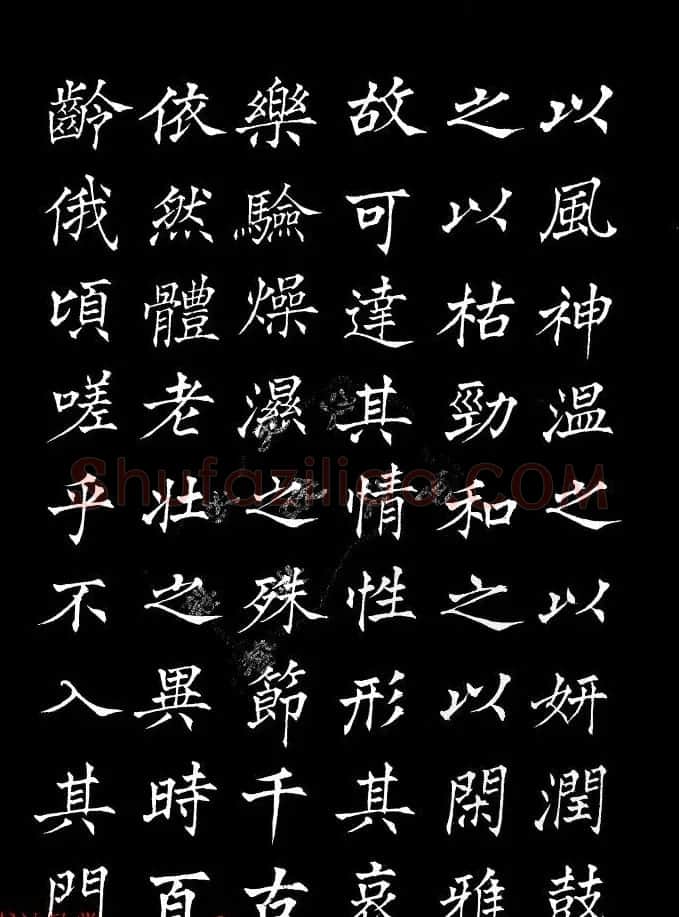 以風神溫之以妍潤鼓
之以枯勁和之以閑雅
故可達其情性形其哀
樂驗燥濕之殊節千古
依然體老壯之異時百
齡俄頃嗟乎不入其門
Shufaziliao.COM